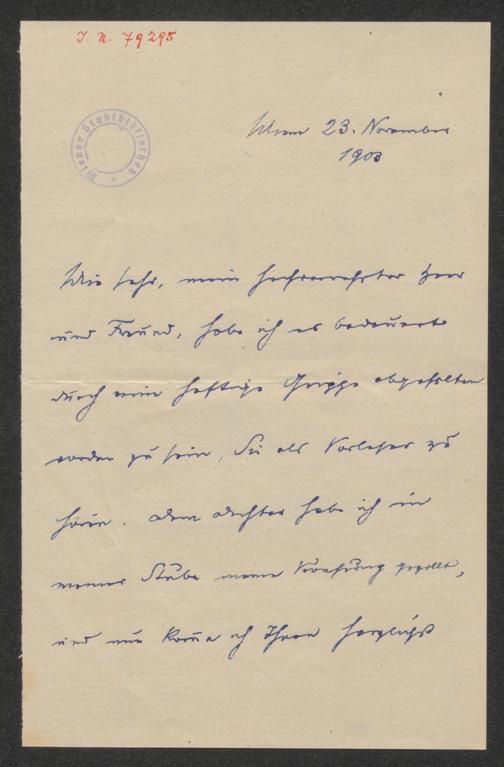 I. N. 79295
Wiener Stadtbibliothek
Wien 23. November
1903
Wie sehr, mein hochverehrter Herr
und Freund, habe ich es bedauert
durch eine heftige Grippe abgehalten
worden zu sein, Sie als Vorleser zu
hören. Dem Dichter habe ich in
meiner Stube meine Verehrung gezollt,
und nun komme ich Ihnen herzlichst